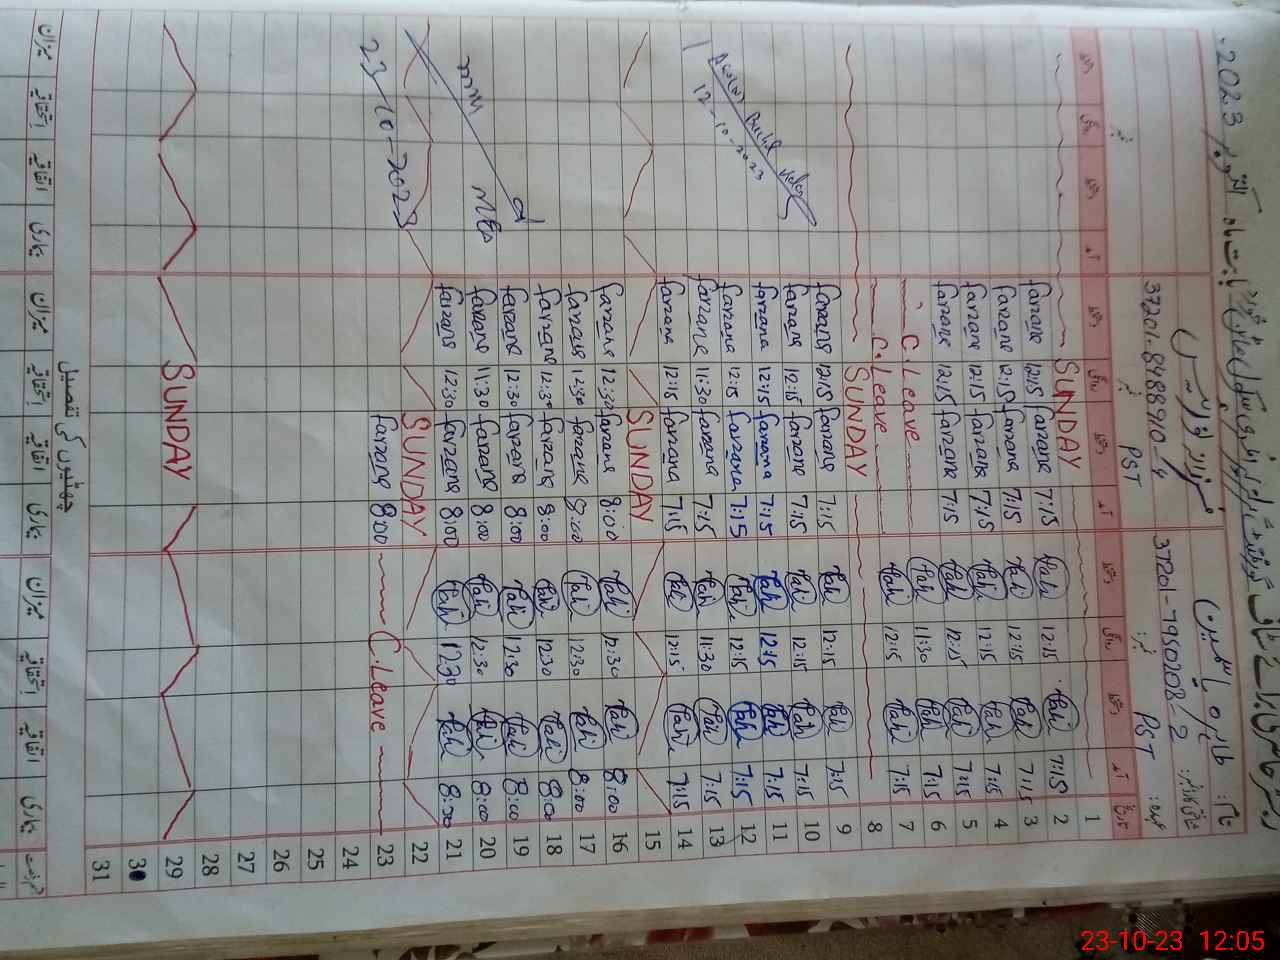 .2023
نام: طاہرہ یاسمین
فرزانہ
شناختی کارڈ نمبر: 37201-7950208-2
37201-8488910-4
عہدہ: PST
نمبر:
PST
نمبر
تاریخ آمد دستخط روانگی دستخط آمد دستخط روانگی دستخط آمد دستخط روانگی دستخط
SUNDAY 1
farzana 12:15 farzana 7:15 Tahi 12:15 Tahi 7:15 2
farzana 12:15 farzana 7:15 Tahi 12:15 Tahi 7:15 3
farzana 12:15 farzana 7:15 Tahi 12:15 Tahi 7:15 4
farzana 12:15 farzana 7:15 Tahi 12:15 Tahi 7:15 5
C.Leave Tahi 11:30 Tahi 7:15 6
C.Leave Tahi 12:15 Tahi 7:15 7
SUNDAY 8
farzana 12:15 farzana 7:15 Tahi 12:15 Tahi 7:15 9
farzana 12:15 farzana 7:15 Tahi 12:15 Tahi 7:15 10
farzana 12:15 farzana 7:15 Tahi 12:15 Tahi 7:15 11
12-10-2023
farzana 12:15 farzana 7:15 Tahi 12:15 Tahi 7:15 12
farzana 11:30 farzana 7:15 Tahi 11:30 Tahi 7:15 13
farzana 12:15 farzana 7:15 Tahi 12:15 Tahi 7:15 14
SUNDAY 15
farzana 12:30 farzana 8:00 Tahi 12:30 Tahi 8:00 16
farzana 12:30 farzana 8:00 Tahi 12:30 Tahi 8:00 17
farzana 12:30 farzana 8:00 Tahi 12:30 Tahi 8:00 18
farzana 12:30 farzana 8:00 Tahi 12:30 Tahi 8:00 19
farzana 11:30 farzana 8:00 Tahi 12:30 Tahi 8:00 20
farzana 12:30 farzana 8:00 Tahi 12:30 Tahi 8:00 21
SUNDAY 22
23-10-2023
farzana 8:00 C.Leave 23
24
25
26
27
28
SUNDAY 29
30
31
چھٹیوں کی تفصیل
بیماری اتفاقیہ استحقاقیہ میزان بیماری اتفاقیہ استحقاقیہ میزان بیماری اتفاقیہ استحقاقیہ میزان
23-10-23 12:05